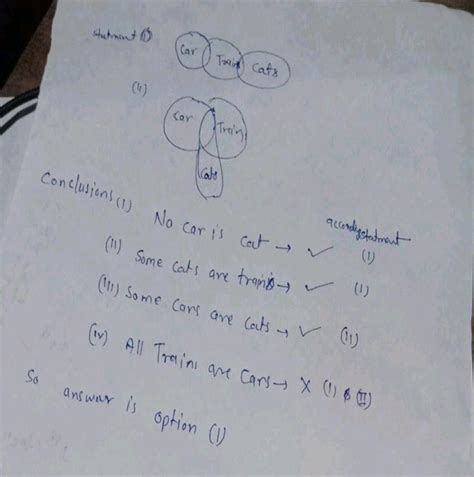 statment (I)
Car Train Cats
(II)
Car Train
Cats
Conclusions (I) No car is cat → ✓ (I)
accordig statment
(II) Some cats are trains → ✓ (I)
(III) Some Cars are Cats → ✓ (II)
(iv) All Trains are Cars → X (I) & (II)
So answer is option (1)